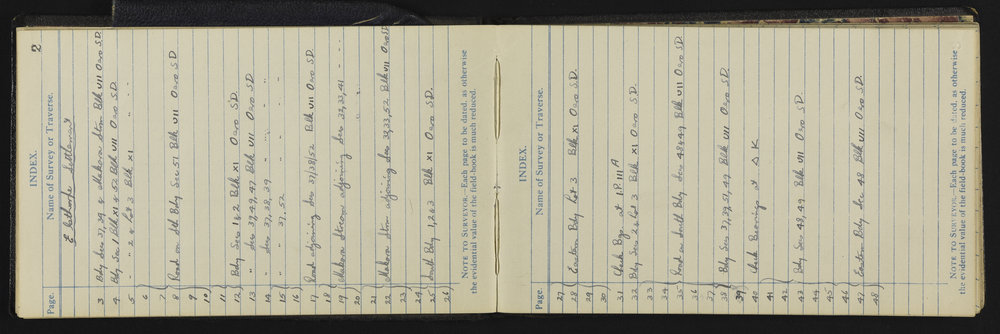 2
INDEX.
Page.
Name of Survey or Traverse.
Settlement
3 Bdy Secs 37, 39 & Makara Strm Blk VII Oaro S.D.
4 Bdy Sec 1 Blk XI & 52 Blk VII Oaro S.D.
5 " " 2 & Lot 3 Blk XI " "
6
7
8 Road on Sth Bdy Sec 51 Blk VII Oaro S.D.
9
10
11
12 Bdy Secs 1 & 2 Blk XI Oaro S.D.
13 " Secs 37, 49, 47 Blk VII Oaro S.D.
14 " Secs 37, 38, 39 "
15 " " 37, 52 "
16
17 Road adjoining Secs 37/38/52 Blk VII Oaro S.D.
18
19 Makara Stream adjoining Secs 32, 33, 41 " " "
20
21
22 Makara Strm adjoining Secs 32, 33, 52 Blk VII Oaro S.D.
23
24
25 South Bdy 1, 2 & 3 Blk XI Oaro S.D.
26
NOTE TO SURVEYOR.—Each page to be dated, as otherwise
the evidential value of the field-book is much reduced.
INDEX.
Page.
Name of Survey or Traverse.
27
28 Eastern Bdy Lot 3 Blk XI Oaro S.D.
29
30
31 Check Brgs at I.P. III A
32 Bdy Secs 2 & Lot 3 Blk XI Oaro S.D.
33
34
35 Road on South Bdy Secs 48 & 49 Blk VII Oaro S.D.
36
37
38 Bdy Secs 37, 39, 51, 49 Blk VII Oaro S.D.
39
40 Check Bearings at Δ K
41
42
43 Bdy Secs 48, 49 Blk VII Oaro S.D.
44
45
46
47 Eastern Bdy Sec 48 Blk VII Oaro S.D.
48
NOTE TO SURVEYOR.—Each page to be dated, as otherwise
the evidential value of the field-book is much reduced.